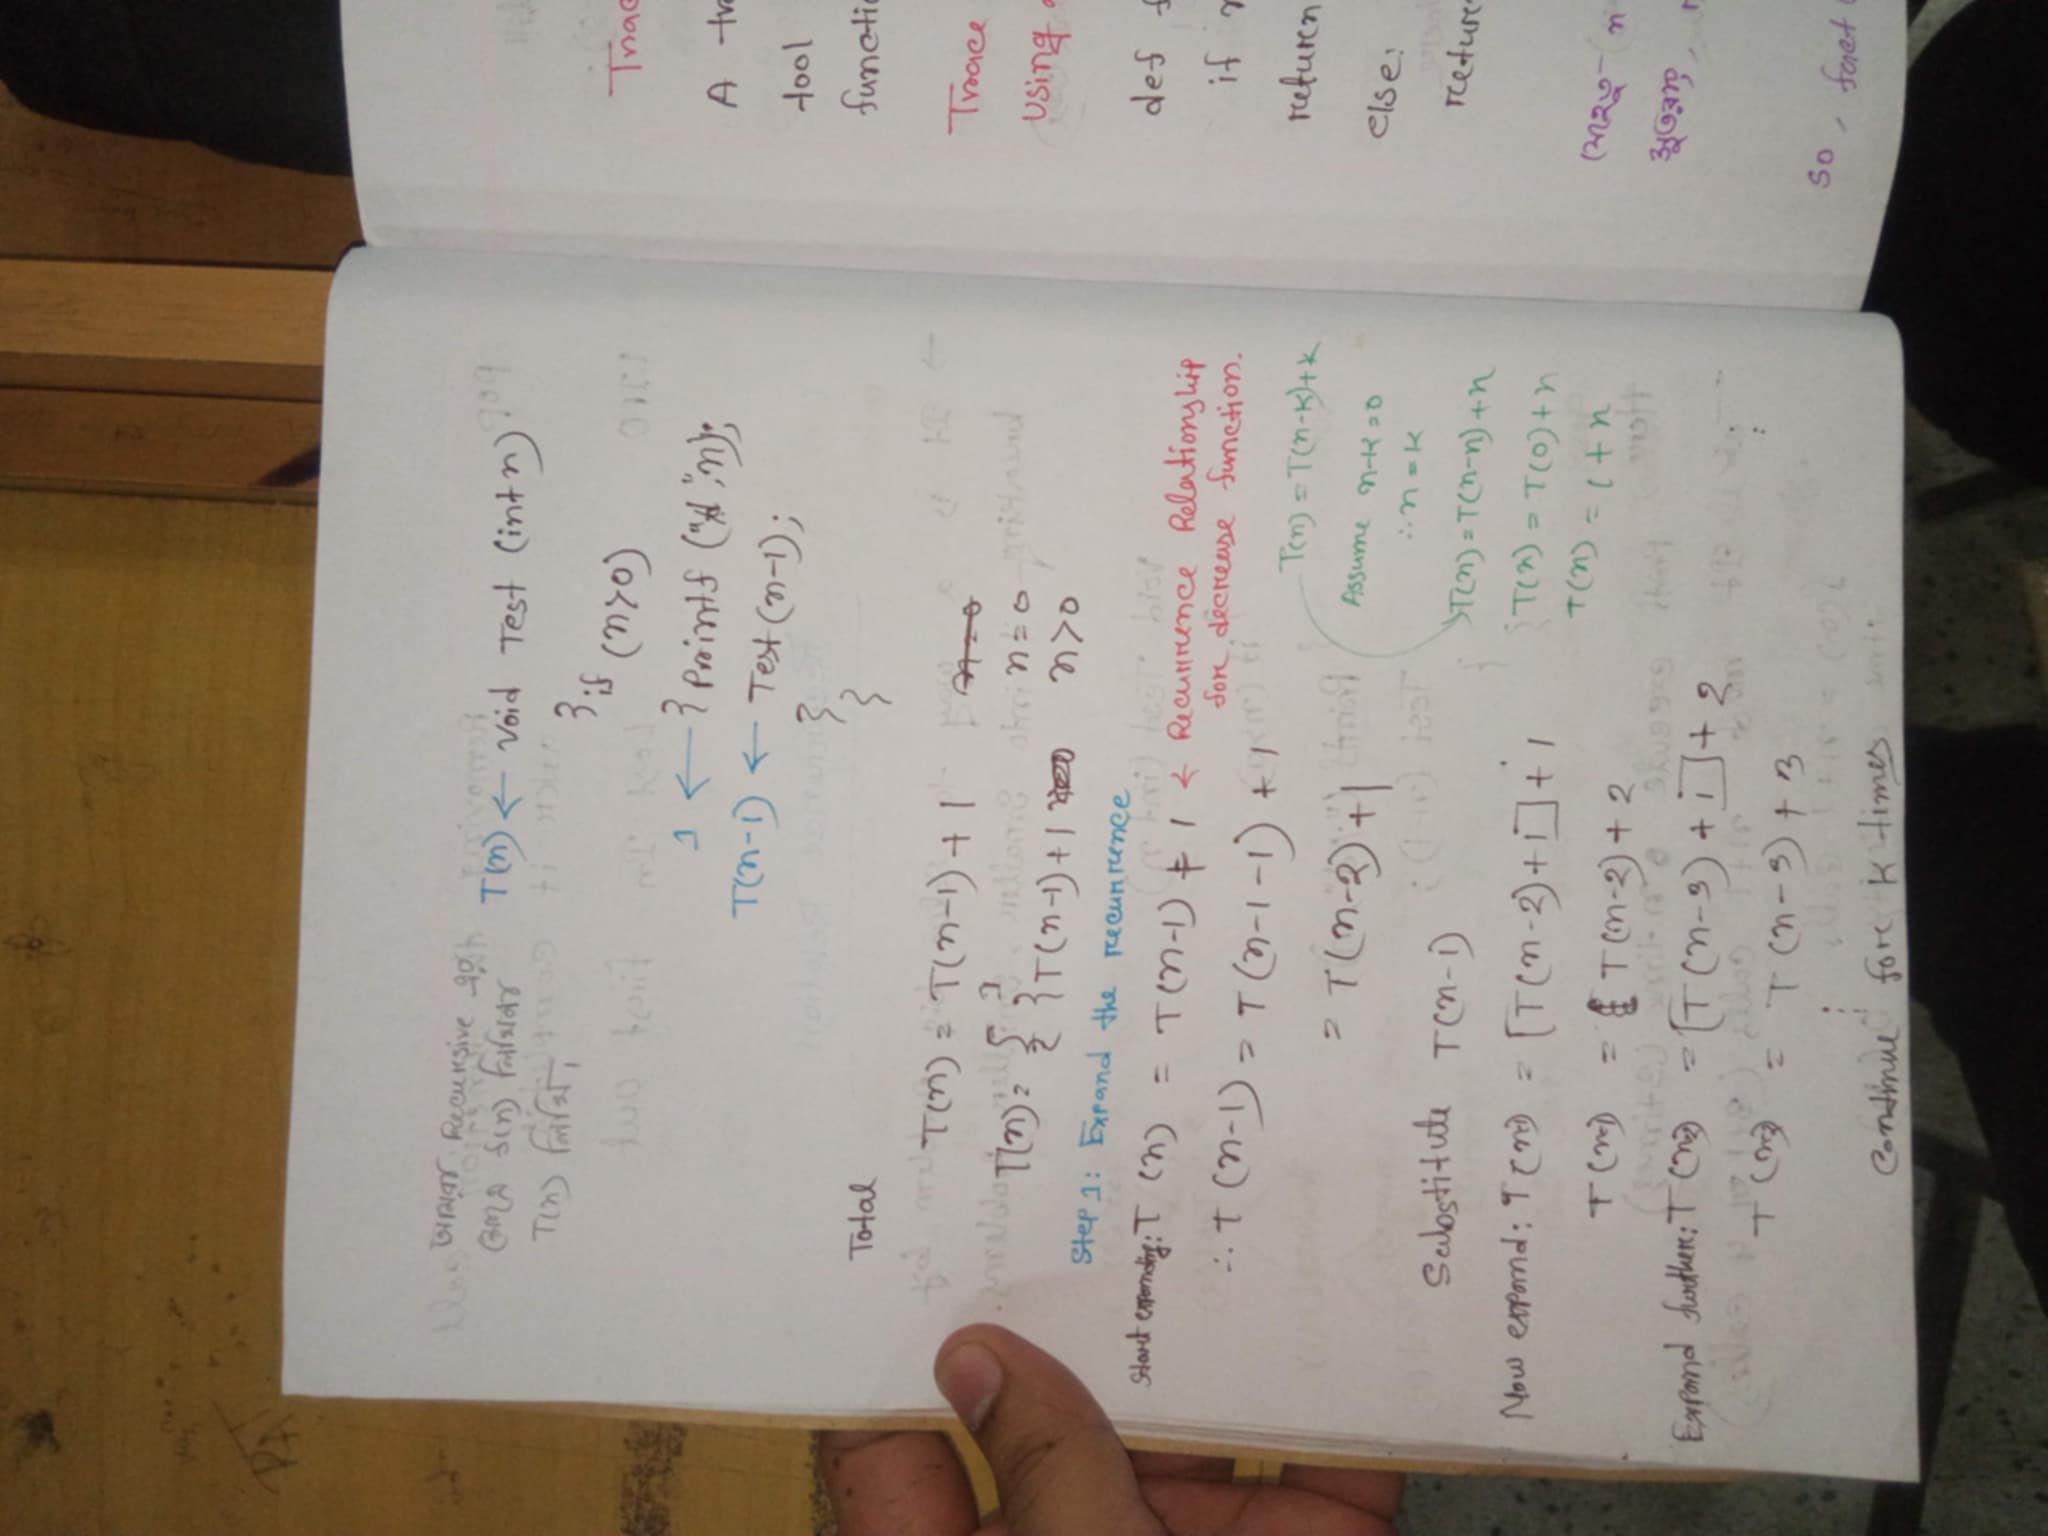 আমরা Recursive এর
ক্ষেত্রে f(n) লিখিবার
T(n) লিখি।
T(n) ← Void Test (int n)
{ if (n>0)
1 ← { Printf ("%d", n);
T(n-1) ← Test (n-1);
}
}
Total
T(n) = T(n-1) + 1
T(n) = { 1 n=0
T(n-1) + 1 n>0
Step 1: Expand the recurrence
Start expanding: T(n) = T(n-1) + 1 ← Recurrence Relationship
for decrease function.
∴ T(n-1) = T(n-1-1) + 1
= T(n-2) + 1
Substitute T(n-1)
Now expand: T(n-1) = [T(n-2)+1] + 1
T(n-1) = T(n-2) + 2
Expand further: T(n-2) = [T(n-3) + 1] + 2
T(n-3) = T(n-3) + 3
⋮
Continue for k times
T(n) = T(n-k)+k
Assume n-k=0
∴ n=k
T(n) = T(n-n) + n
T(n) = T(0) + n
T(n) = 1 + n
A
tool
Trace
using
def f
if
return
else:
return
যেহেতু n
সুতরাং,
so, fact